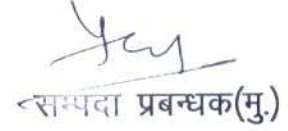 सम्पदा प्रबन्धक(मु.)